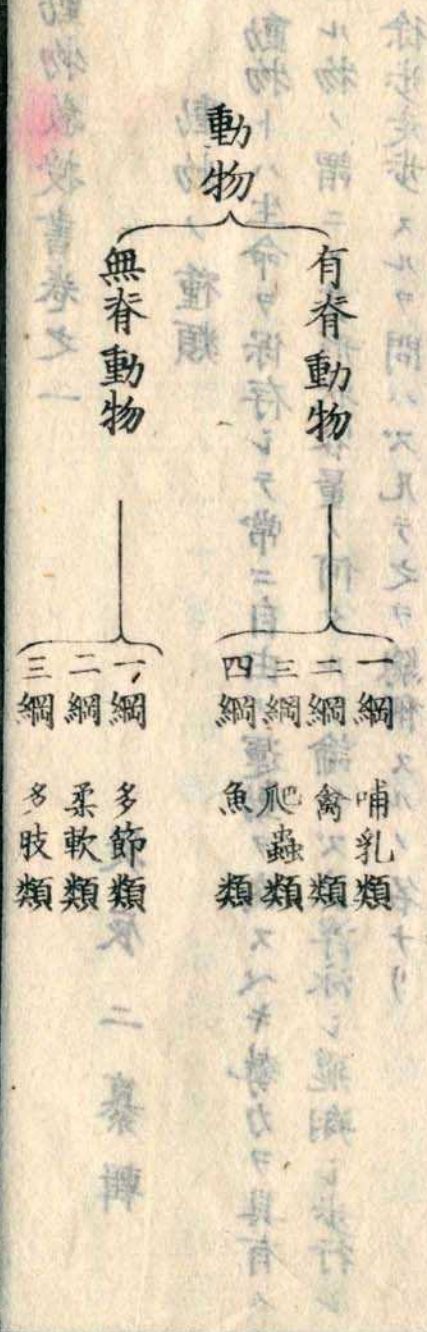 動物
有脊動物
一綱 哺乳類
二綱 禽類
三綱 爬蟲類
四綱 魚類
無脊動物
一綱 多節類
二綱 柔軟類
三綱 多肢類